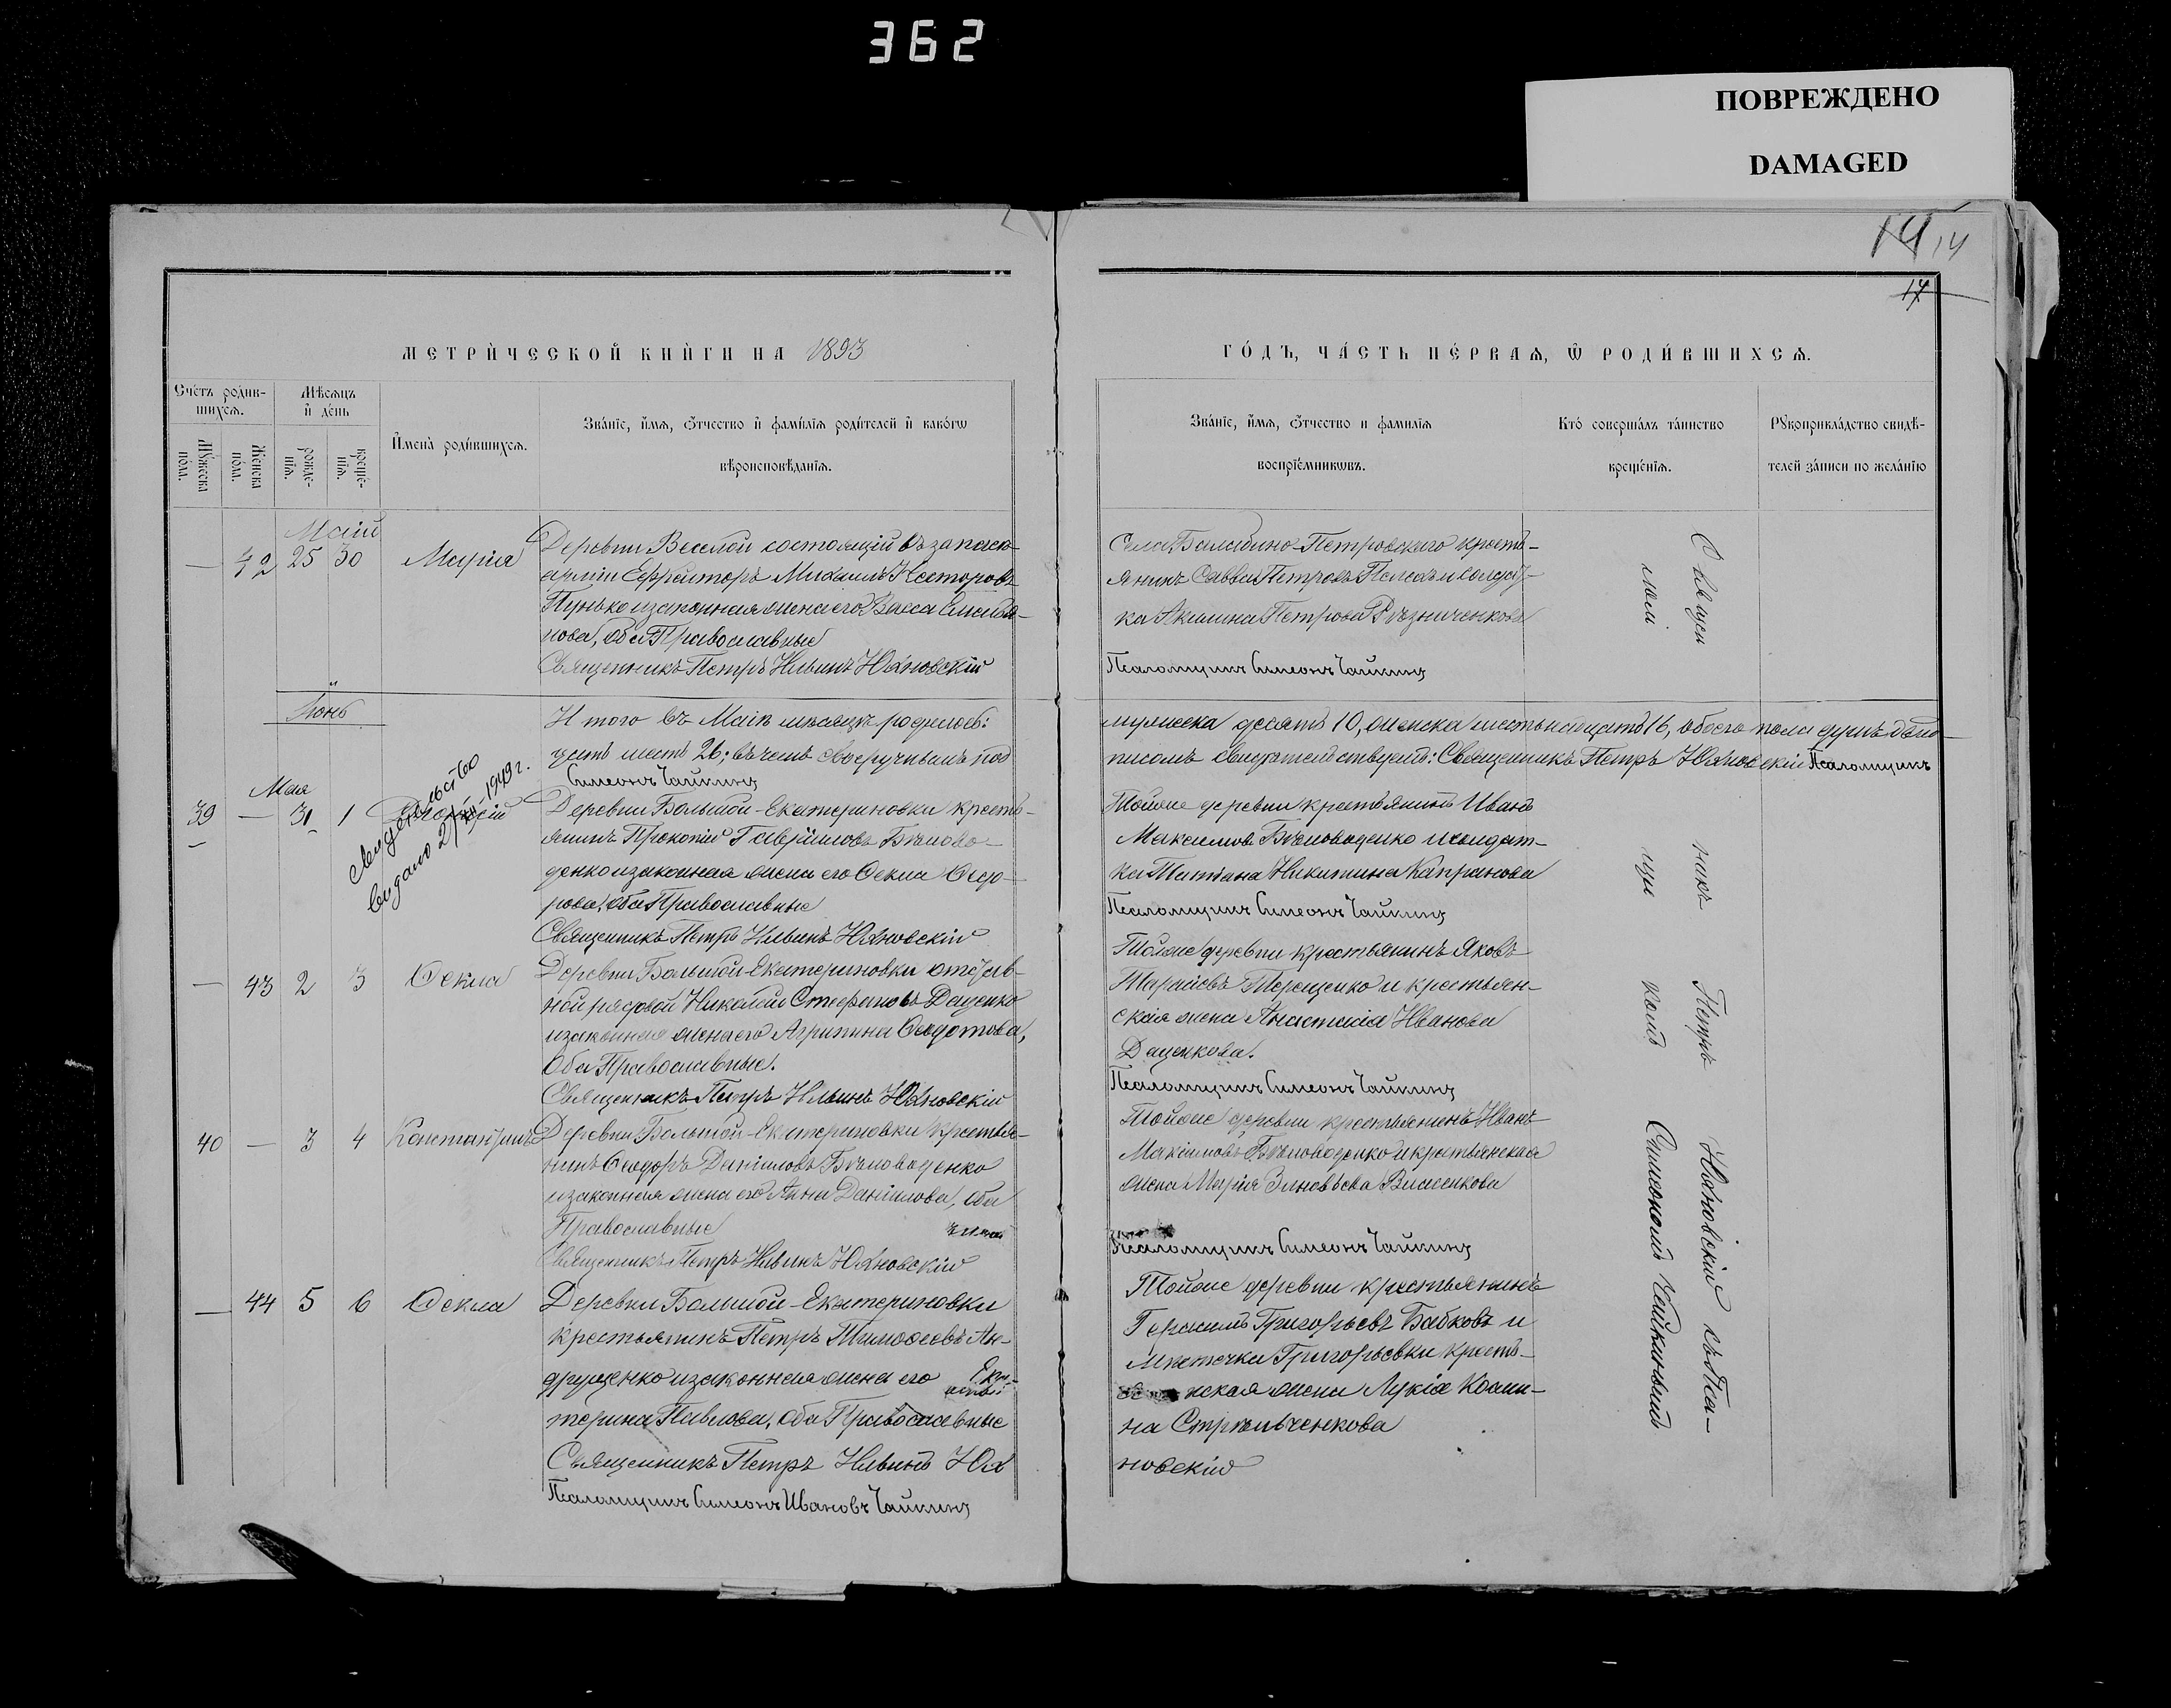 362
ПОВРЕЖДЕНО
DAMAGED
14 14
17
МЕТРИ́ЧЕСКОЙ КНИ́ГИ НА 1893
ГО́ДЪ, ЧА́СТЬ ПЕ́РВАѦ, Ѿ РОДИ́ВШИХСѦ.
Сче́тъ роди́в-
шихсѧ.
Мꙋ́жеска
по́ла.
Же́нска
по́ла.
Мѣ́сѧцъ
и҆ де́нь
рожде́-
нїѧ.
креще́-
нїѧ.
И҆мена̀ роди́вшихсѧ.
Зва́нїе, и҆́мѧ, ѻ҆́тчество и҆ фами́лїѧ роди́телей и҆ како́гѡ
вѣроисповѣ́данїѧ.
Зва́нїе, и҆́мѧ, ѻ҆́тчество и фами́лїѧ
воспрїе́мникѡвъ.
Кто́ соверша́лъ та́инство
креще́нїѧ.
Рꙋкоприкла́дство свидѣ́-
телей за́писи по жела́нїю
Маій
— 42 25 30 Марія
Деревни Веселой состоящій въ запасѣ
арміи Ефрейторъ Михаилъ Несторовъ
Пунько и законная жена его Васса Емелья-
нова, оба Православные
Священникъ Петръ Ильинъ Юхновскій
Села Балабино-Петровскаго кресть-
янинъ Савва Петровъ и солдат-
ка Акилина Петрова Рѣзниченкова
Псаломщикъ Симеонъ Чайкинъ
Іюнь
Итого въ Маіѣ мѣсяцѣ родилось:
мужеска десять 10, женска шестьнадцать 16, обоего пола душъ двад-
цать шесть 26; въ чемъ своеручнымъ под
писомъ свидѣтельствуемъ: Священникъ Петръ Юхновскій Псаломщикъ
Симеонъ Чайкинъ
Мая
39 — 31 1
Свидетельство
выдано 1949 г.
Деревни Большой-Екатериновки кресть-
янинъ Прокопій Гавріиловъ Бѣлово-
денко и законная жена его Ѳекла Ѳедо-
рова, оба Православные
Священникъ Петръ Ильинъ Юхновскій
Тойже деревни крестьянинъ Иванъ
Максимовъ Бѣловоденко и солдат-
ка Татіана Никитина Капранова
Псаломщикъ Симеонъ Чайкинъ
— 43 2 3 Ѳекла
Деревни Большой-Екатериновки отстав-
ной рядовой Николай Стефановъ Даценко
и законная жена его Агрипина Ѳеодотова,
Оба Православные.
Священникъ Петръ Ильинъ Юхновскій
Тойже деревни крестьянинъ Яковъ
Терещенко и крестьян-
ская жена Анастасія Иванова
Даценкова.
Псаломщикъ Симеонъ Чайкинъ
40 — 3 4 Константинъ
Деревни Большой-Екатериновки крестья-
нинъ Ѳеодоръ Даніиловъ Бѣловоденко
и законная жена его Анна Даніилова, оба
Православные
Священникъ Петръ Ильинъ Юхновскій
Тойже деревни крестьянинъ Иванъ
Максимовъ Бѣловоденко и крестьянская
жена Марія Зиновьева Власенкова
Псаломщикъ Симеонъ Чайкинъ
— 44 5 6 Ѳекла
Деревни Большой-Екатериновки
крестьянинъ Петръ Тимоѳеевъ Ан-
друщенко и законная жена его Ека-
терина Павлова, оба Православные
Священникъ Петръ Ильинъ Юх
Псаломщикъ Симеонъ Ивановъ Чайкинъ
Тойже деревни крестьянинъ
Герасимъ Григорьевъ Бабковъ и
мѣстечка Григорьевки кресть-
нская жена Лукія Косми-
на Стрѣльченкова
новскій
Священ
никъ
Петръ
Юхновскій съ Пса-
лом
щи
комъ
Симеономъ Чайкинымъ